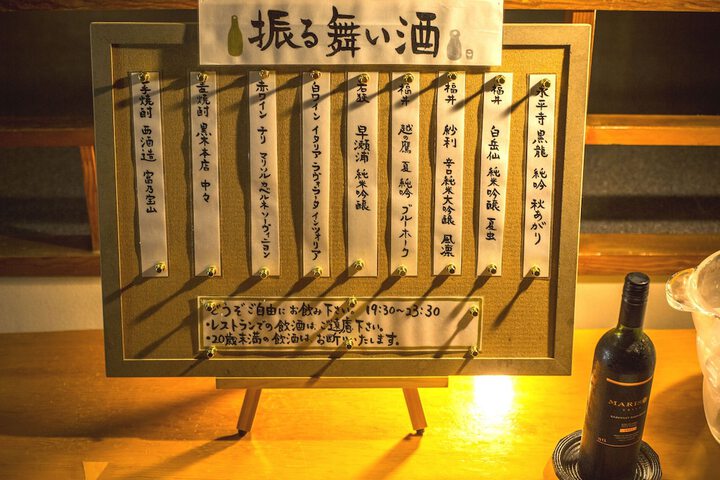 振る舞い酒
永平寺 黒龍 純吟 秋あがり
福井 白岳仙 純米吟醸 夏虫
福井 紗利 辛口純米大吟醸 風凛
福井 越の鷹 夏 純吟 ブルーホーク
若狭 早瀬浦 純米吟醸
白ワイン イタリア ラヴォラータ インツォリア
赤ワイン チリ マリソル カベルネ・ソーヴィニヨン
麦焼酎 黒木本店 中々
芋焼酎 西酒造 富乃宝山
どうぞご自由にお飲み下さい。 19:30~23:30
・レストランでの飲酒は、ご遠慮下さい。
・20歳未満の飲酒はお断りいたします。